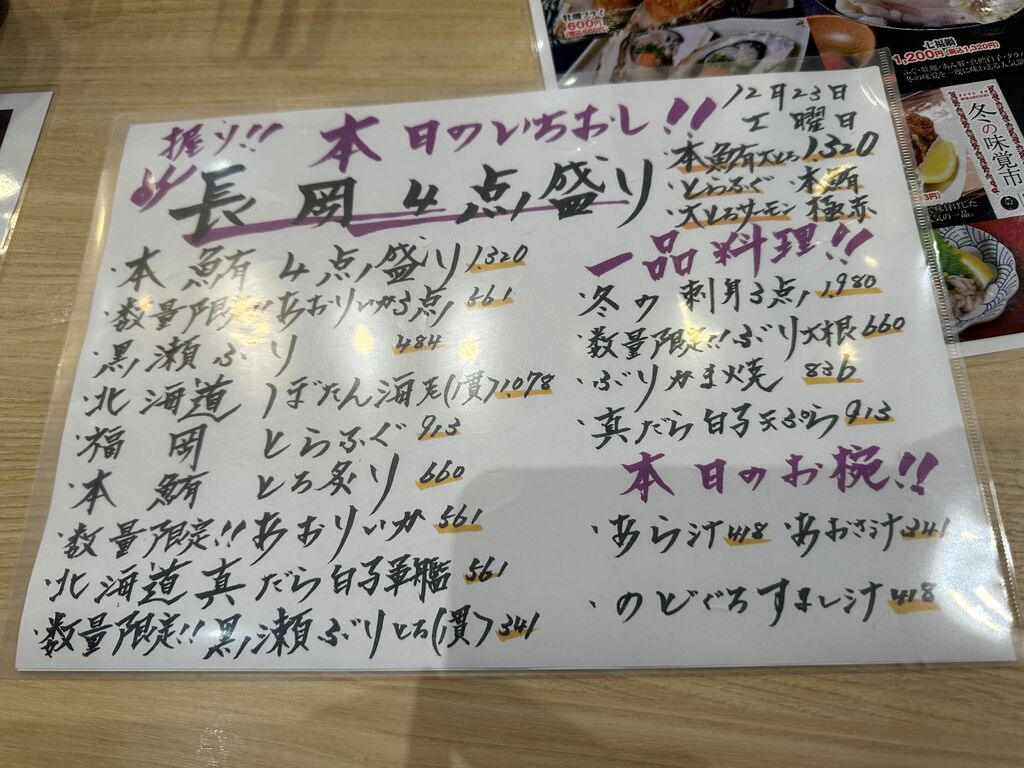 12月23日
土曜日
本日のいちおし!!
握り!!
長岡4点盛り 1.320
・本鮪大とろ
・とらふぐ 本鮪
・大とろサーモン 極赤
・本鮪4点盛り 1.320
・数量限定!!あおりいか3点 561
・黒瀬ぶり 484
・北海道 ぼたん海老(1貫) 1.078
・福岡 とらふぐ 913
・本鮪 とろ炙り 660
・数量限定!!あおりいか 561
・北海道真だら白子軍艦 561
・数量限定!!黒瀬ぶりとろ(1貫) 341
一品料理!!
・冬の刺身3点 1.980
・数量限定!!ぶり大根 660
・ぶりかま焼 836
・真だら白子天ぷら 913
本日のお椀!!
・あら汁 418 ・あおさ汁 341
・のどぐろすまし汁 418
牡蠣フライ
600円
(税込660円)
七福鍋
1,200円(税込1,320円)
冬の味覚を一度に味わえる人気鍋
冬の味覚市